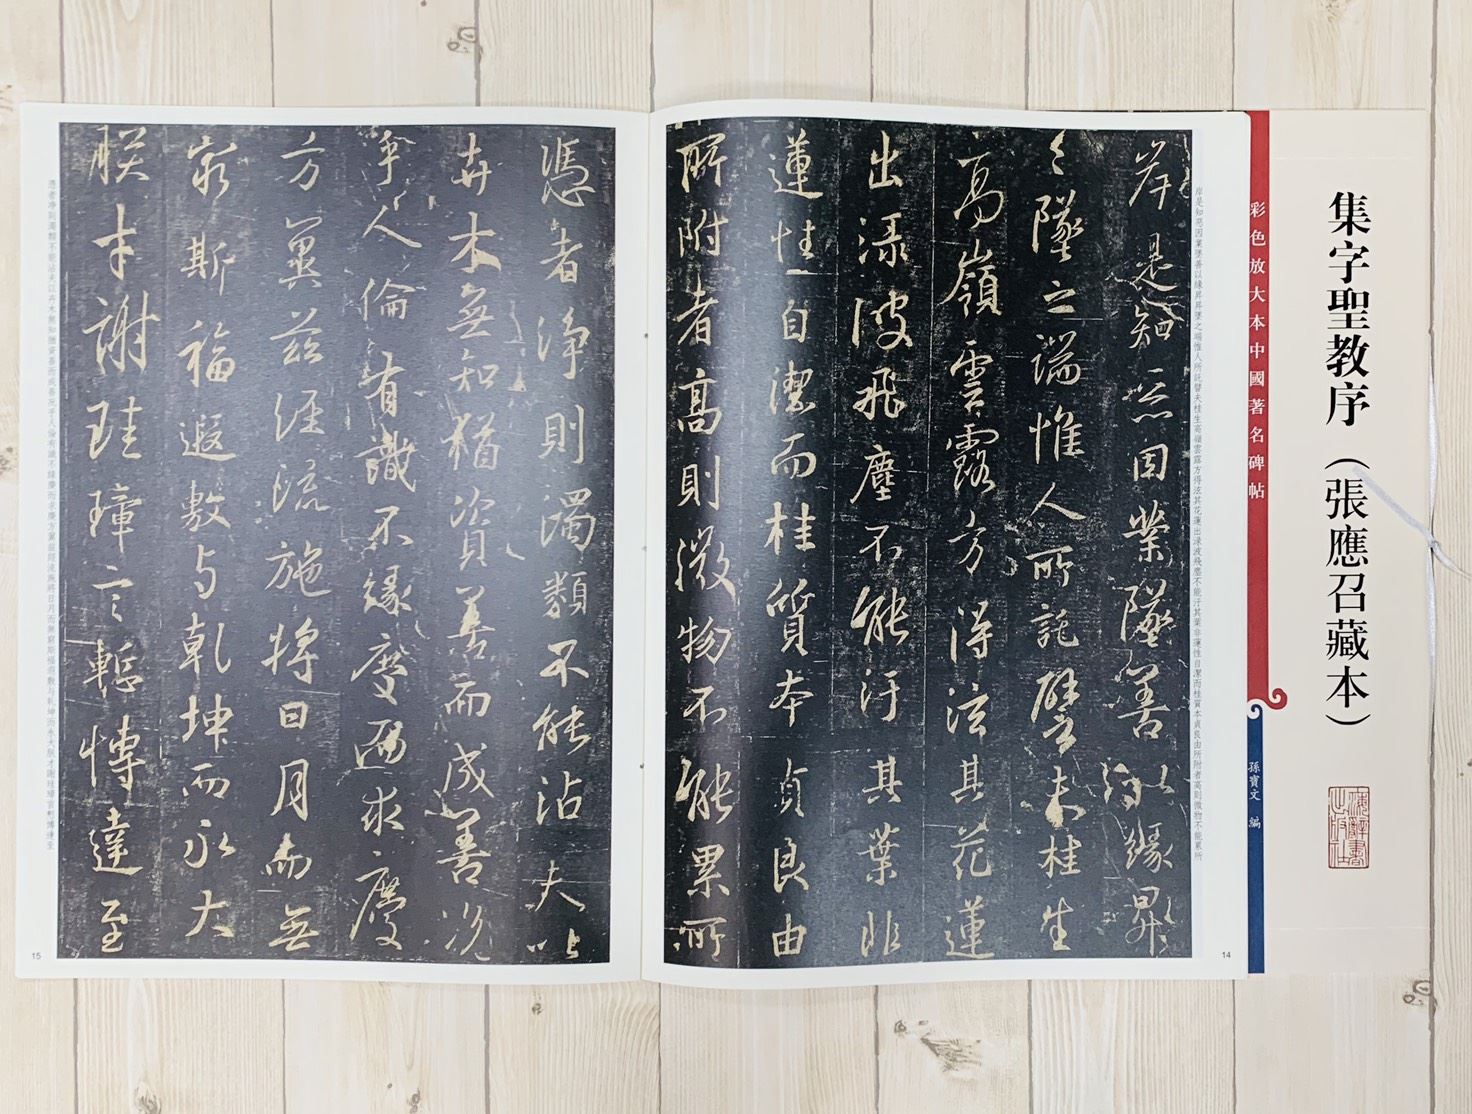 集字聖教序（張應召藏本）
彩色放大本中國著名碑帖
孫寶文 編
岸是知惡因業墜善以緣昇昇墜之端惟人所託譬夫桂生高嶺雲露方得泫其花蓮出淥波飛塵不能汙其葉非蓮性自潔而桂質本貞良由所附者高則微物不能累所
岸是知惡因業墜善以緣昇
〻墜之端惟人所託譬夫桂生
高嶺雲露方得泫其花蓮
出淥波飛塵不能汙其葉非
蓮性自潔而桂質本貞良由
所附者高則微物不能累所
14
憑者淨則濁類不能沾夫以
卉木無知猶資善而成善況
乎人倫有識不緣慶而求慶
方冀茲經流施將日月而無
窮斯福遐敷与乾坤而永大
朕才謝珪璋言慚博達至
憑者淨則濁類不能沾夫以卉木無知猶資善而成善況乎人倫有識不緣慶而求慶方冀茲經流施將日月而無窮斯福遐敷与乾坤而永大朕才謝珪璋言慚博達至
15